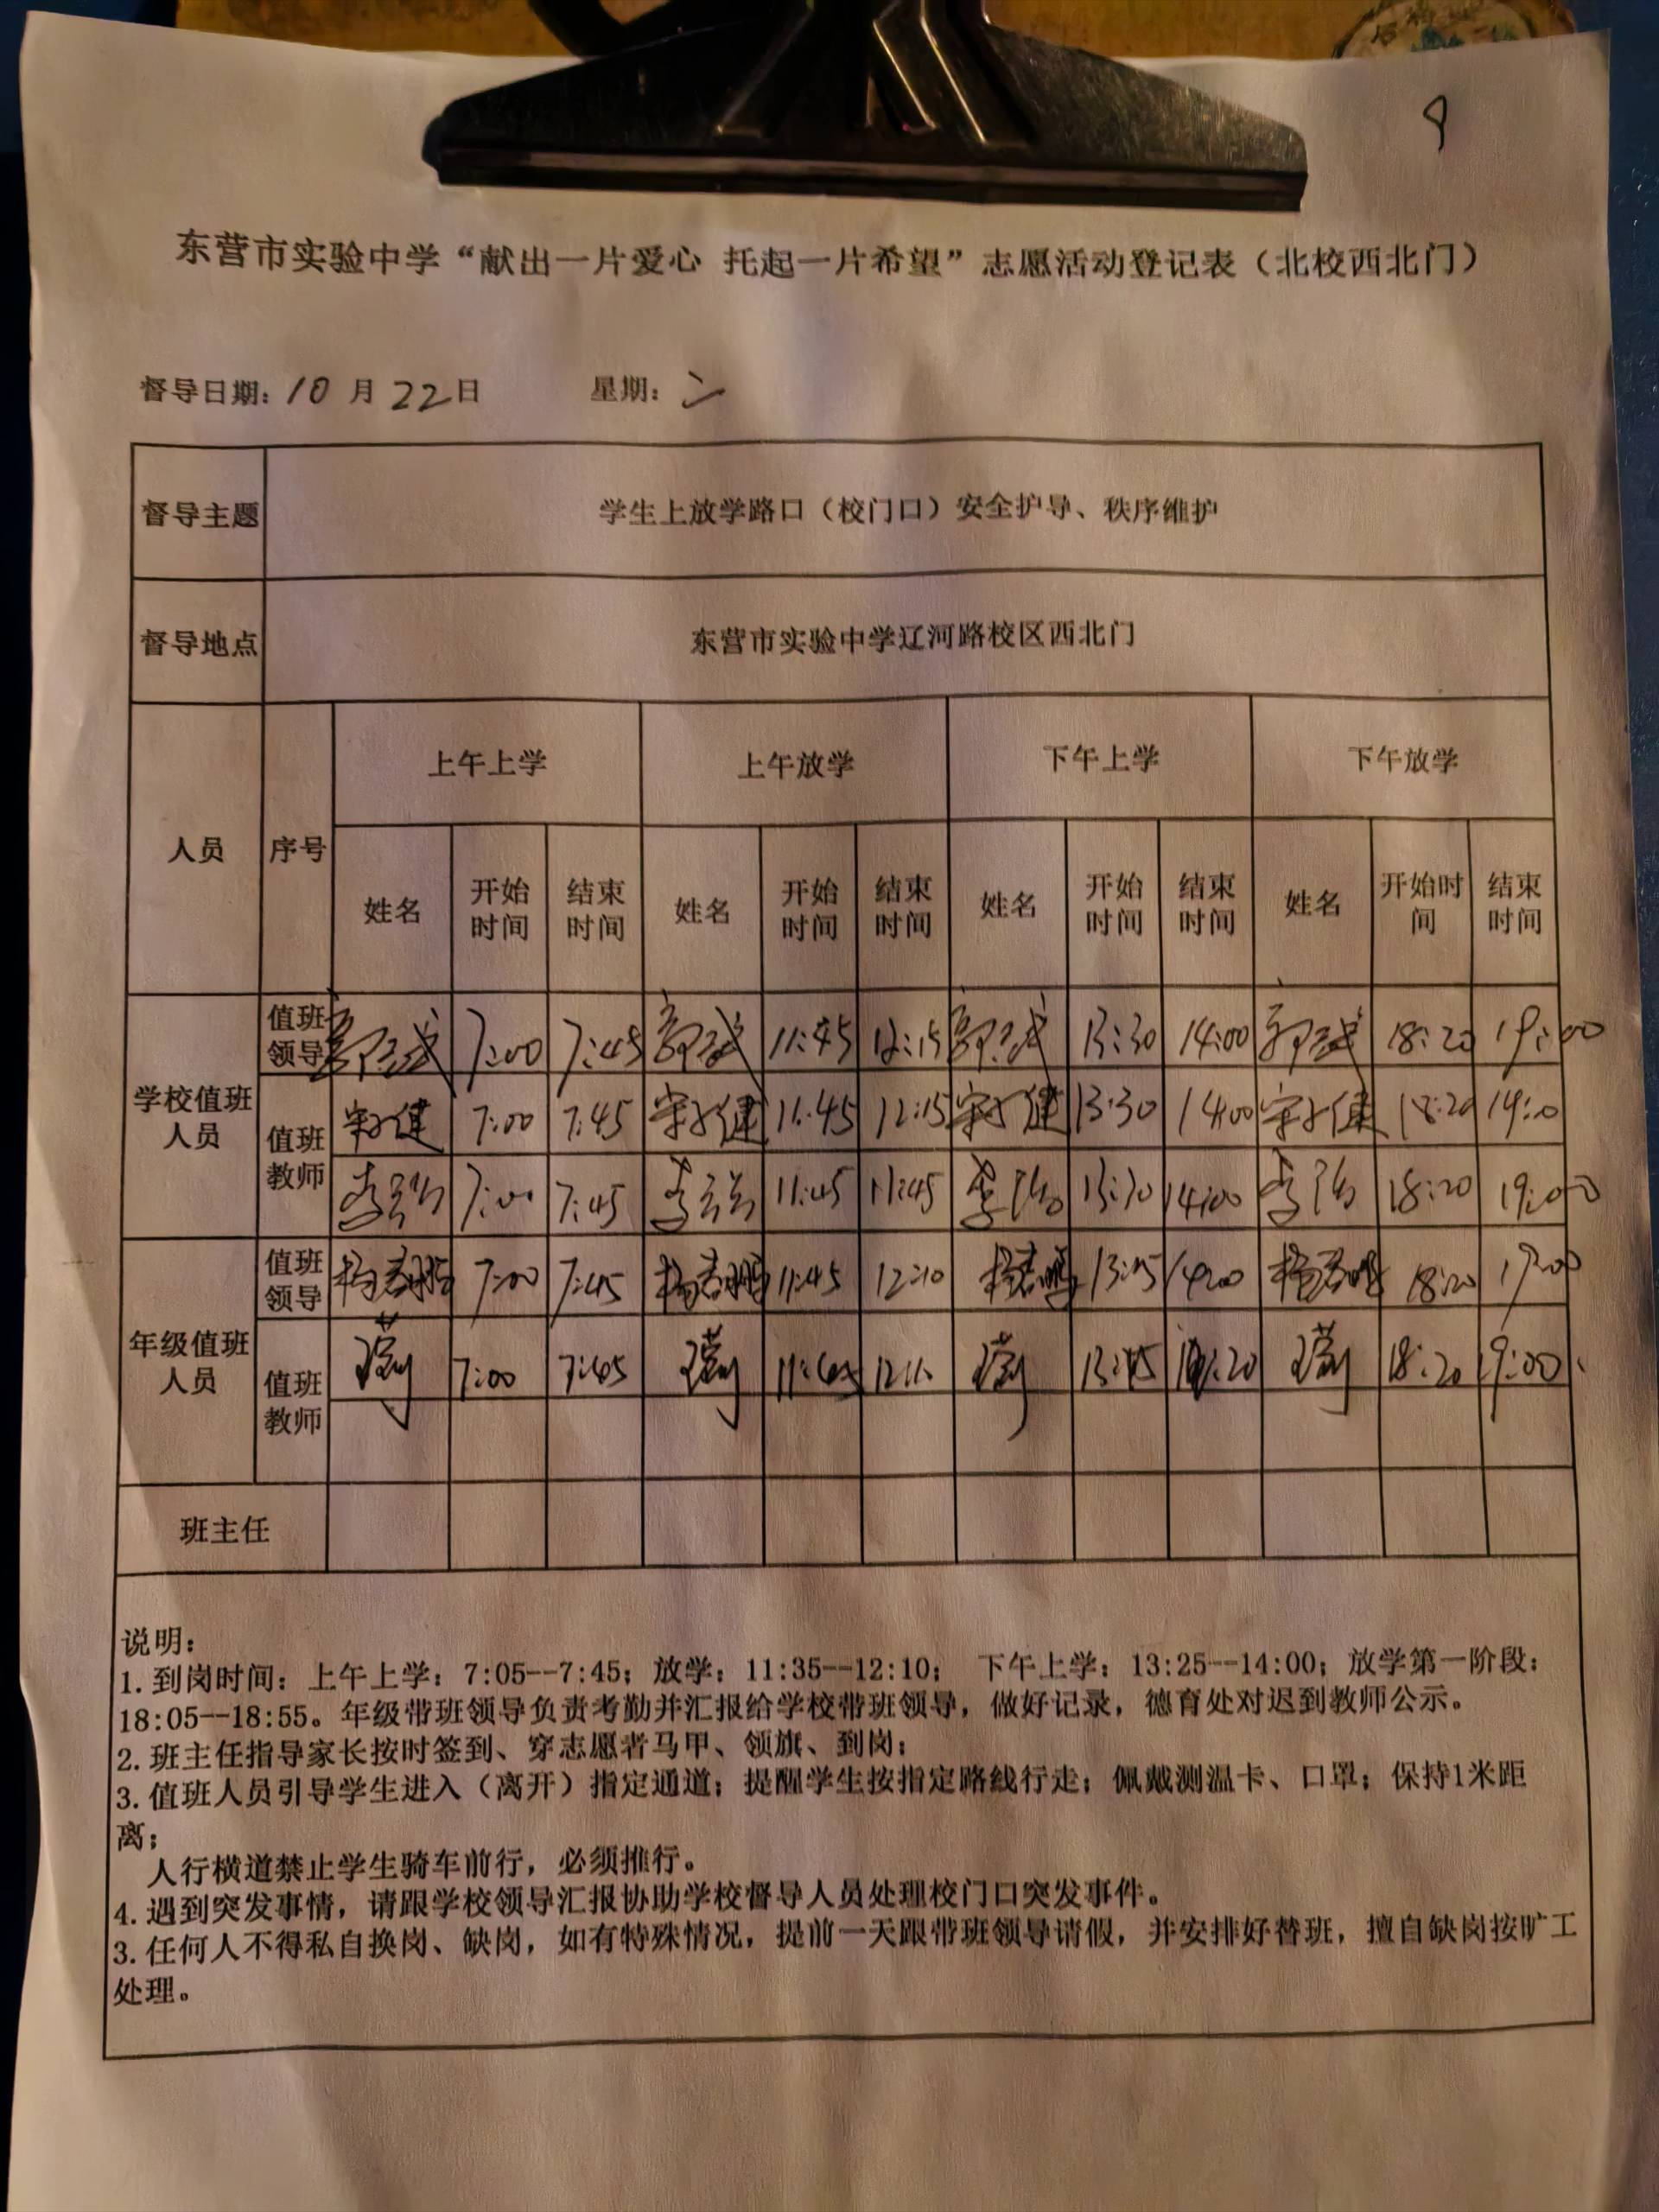 东营市实验中学“献出一片爱心 托起一片希望”志愿活动登记表（北校西北门）
督导日期：10月22日 星期：二
督导主题 学生上放学路口（校门口）安全护导、秩序维护
督导地点 东营市实验中学辽河路校区西北门
人员 序号 上午上学 上午放学 下午上学 下午放学
姓名 开始时间 结束时间 姓名 开始时间 结束时间 姓名 开始时间 结束时间 姓名 开始时间 结束时间
学校值班人员
值班领导 7:00 7:45 11:45 12:15 13:30 14:00 18:20 19:00
值班教师 7:00 7:45 11:45 12:15 13:30 14:00 18:20
7:00 7:45 11:45 11:45 13:30 14:00 18:20 19:00
年级值班人员
值班领导 7:00 7:45 11:45 12:10 18:20
值班教师 7:00 7:45 18:20 19:00
班主任
说明：
1.到岗时间：上午上学：7:05--7:45；放学：11:35--12:10； 下午上学：13:25--14:00；放学第一阶段：
18:05--18:55。年级带班领导负责考勤并汇报给学校带班领导，做好记录，德育处对迟到教师公示。
2.班主任指导家长按时签到、穿志愿者马甲、领旗、到岗；
3.值班人员引导学生进入（离开）指定通道；提醒学生按指定路线行走；佩戴测温卡、口罩；保持1米距
离；
人行横道禁止学生骑车前行，必须推行。
4.遇到突发事情，请跟学校领导汇报协助学校督导人员处理校门口突发事件。
3.任何人不得私自换岗、缺岗，如有特殊情况，提前一天跟带班领导请假，并安排好替班，擅自缺岗按旷工
处理。